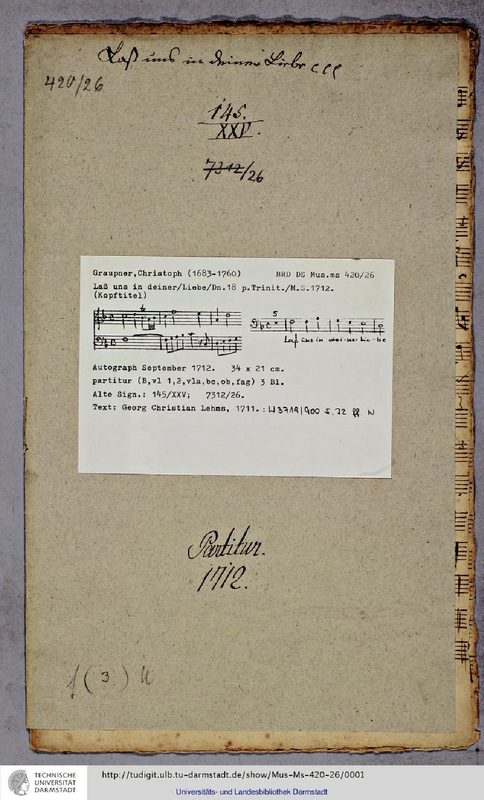 Laß uns in deiner Liebe
420/26
145.
XXV.
7312/26
Graupner,Christoph (1683-1760) BRD DS Mus.ms 420/26
Laß uns in deiner/Liebe/Dn.18 p.Trinit./M.S.1712.
(Kopftitel)
5
Laß uns in dei-ner Lie-be
Autograph September 1712. 34 x 21 cm.
partitur (B,vl 1,2,vla,bc,ob,fag) 3 Bl.
Alte Sign.: 145/XXV; 7312/26.
Text: Georg Christian Lehms, 1711.: W3719/900 S.72
Partitur.
1712.
(3)
TECHNISCHE
UNIVERSITÄT
DARMSTADT
http://tudigit.ulb.tu-darmstadt.de/show/Mus-Ms-420-26/0001
Universitäts- und Landesbibliothek Darmstadt